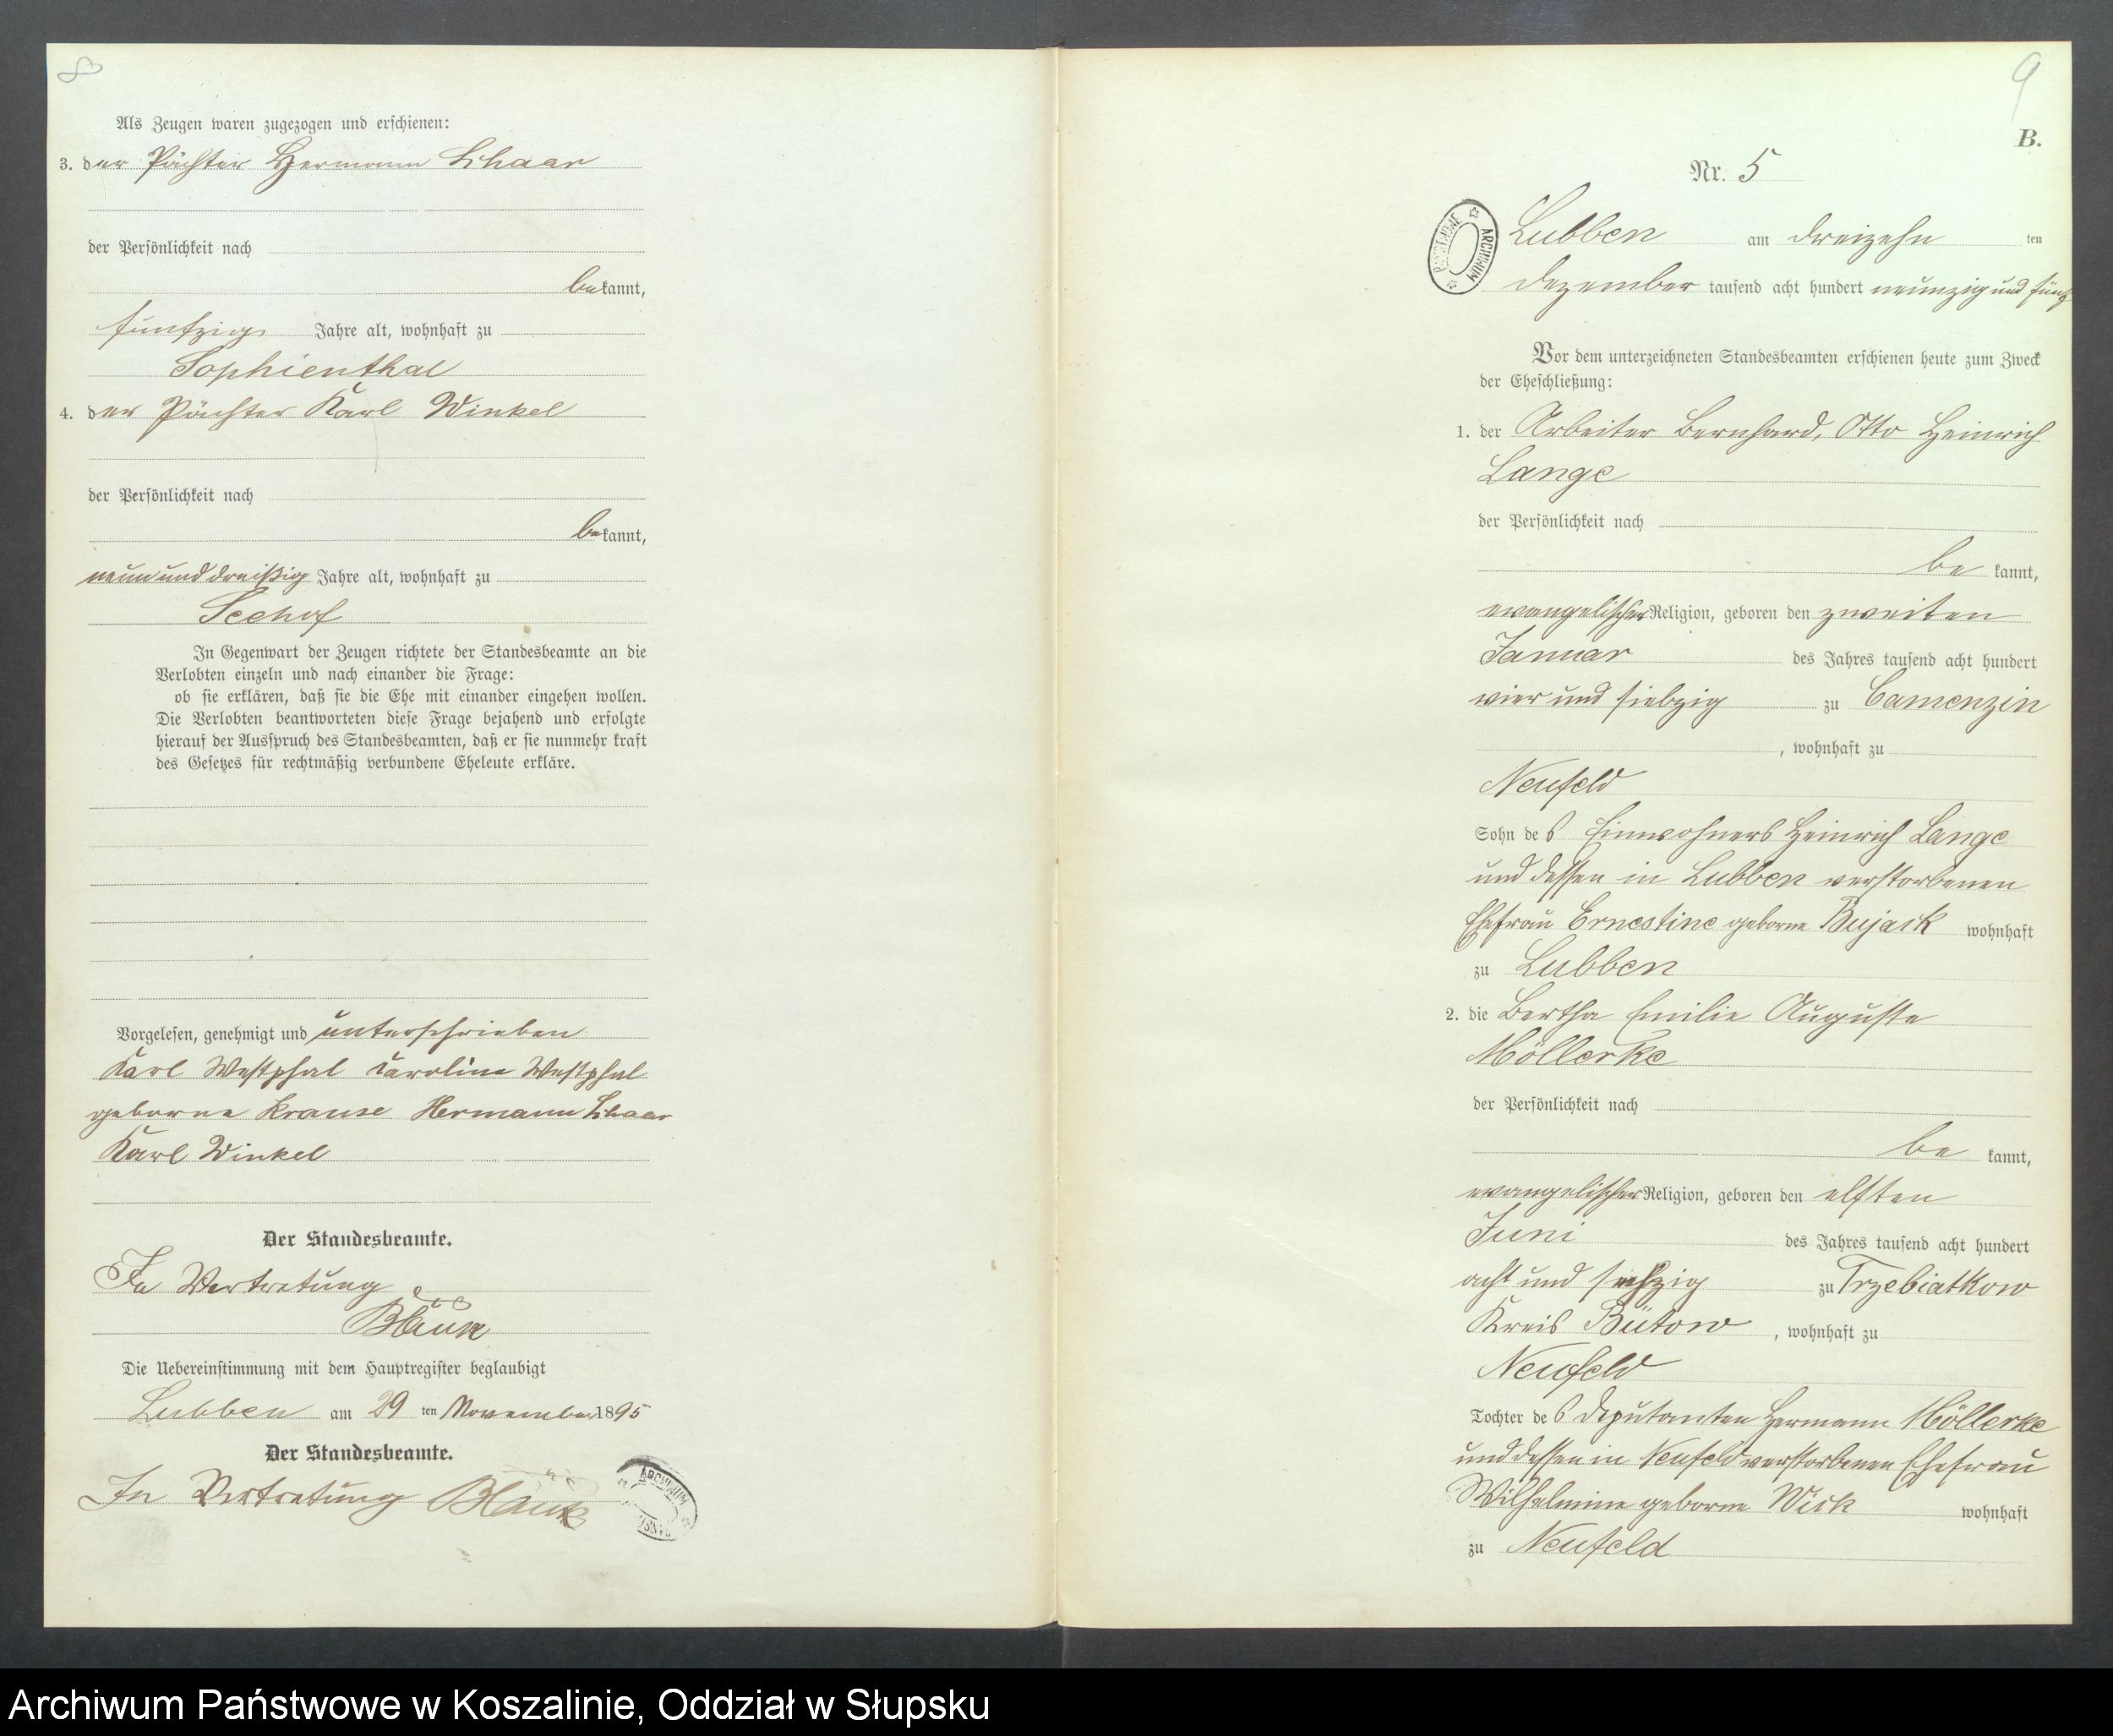 8
Als Zeugen waren zugezogen und erschienen:
3. der Pächter Hermann Schaar
der Persönlichkeit nach
bekannt,
fünfzig Jahre alt, wohnhaft zu
Sophienthal
4. der Pächter Karl Winkel
der Persönlichkeit nach
bekannt,
neun und dreißig Jahre alt, wohnhaft zu
Seehof
In Gegenwart der Zeugen richtete der Standesbeamte an die
Verlobten einzeln und nach einander die Frage:
ob sie erklären, daß sie die Ehe mit einander eingehen wollen.
Die Verlobten beantworteten diese Frage bejahend und erfolgte
hierauf der Ausspruch des Standesbeamten, daß er sie nunmehr kraft
des Gesetzes für rechtmäßig verbundene Eheleute erkläre.
Vorgelesen, genehmigt und unterschrieben
Karl Westphal Karoline Westphal
geborne Krause Hermann Schaar
Karl Winkel
Der Standesbeamte.
In Vertretung
Die Uebereinstimmung mit dem Hauptregister beglaubigt
Lubben am 29 ten November 1895
Der Standesbeamte.
In Vertretung
ARCHIWUM
9
B.
Nr. 5
ARCHIWUM PAŃSTWOWE
Lubben am dreizehn ten
Dezember tausend acht hundert neunzig und fünf
Vor dem unterzeichneten Standesbeamten erschienen heute zum Zweck
der Eheschließung:
1. der Arbeiter Bernhard, Otto Heinrich
Lange
der Persönlichkeit nach
be kannt,
evangelischer Religion, geboren den zweiten
Januar des Jahres tausend acht hundert
vier und siebzig zu Camenzin
, wohnhaft zu
Neufeld
Sohn des Einwohners Heinrich Lange
und dessen in Lubben verstorbenen
Ehefrau Ernestine geborne Bujack wohnhaft
zu Lubben
2. die Bertha Emilie Auguste
Möllerke
der Persönlichkeit nach
be kannt,
evangelischer Religion, geboren den elften
Juni des Jahres tausend acht hundert
acht und sechzig zu Trzebiatkow
Kreis Bütow , wohnhaft zu
Neufeld
Tochter des Deputanten Hermann Möllerke
und dessen in Neufeld verstorbenen Ehefrau
Wilhelmine geborne Wick wohnhaft
zu Neufeld
Archiwum Państwowe w Koszalinie, Oddział w Słupsku